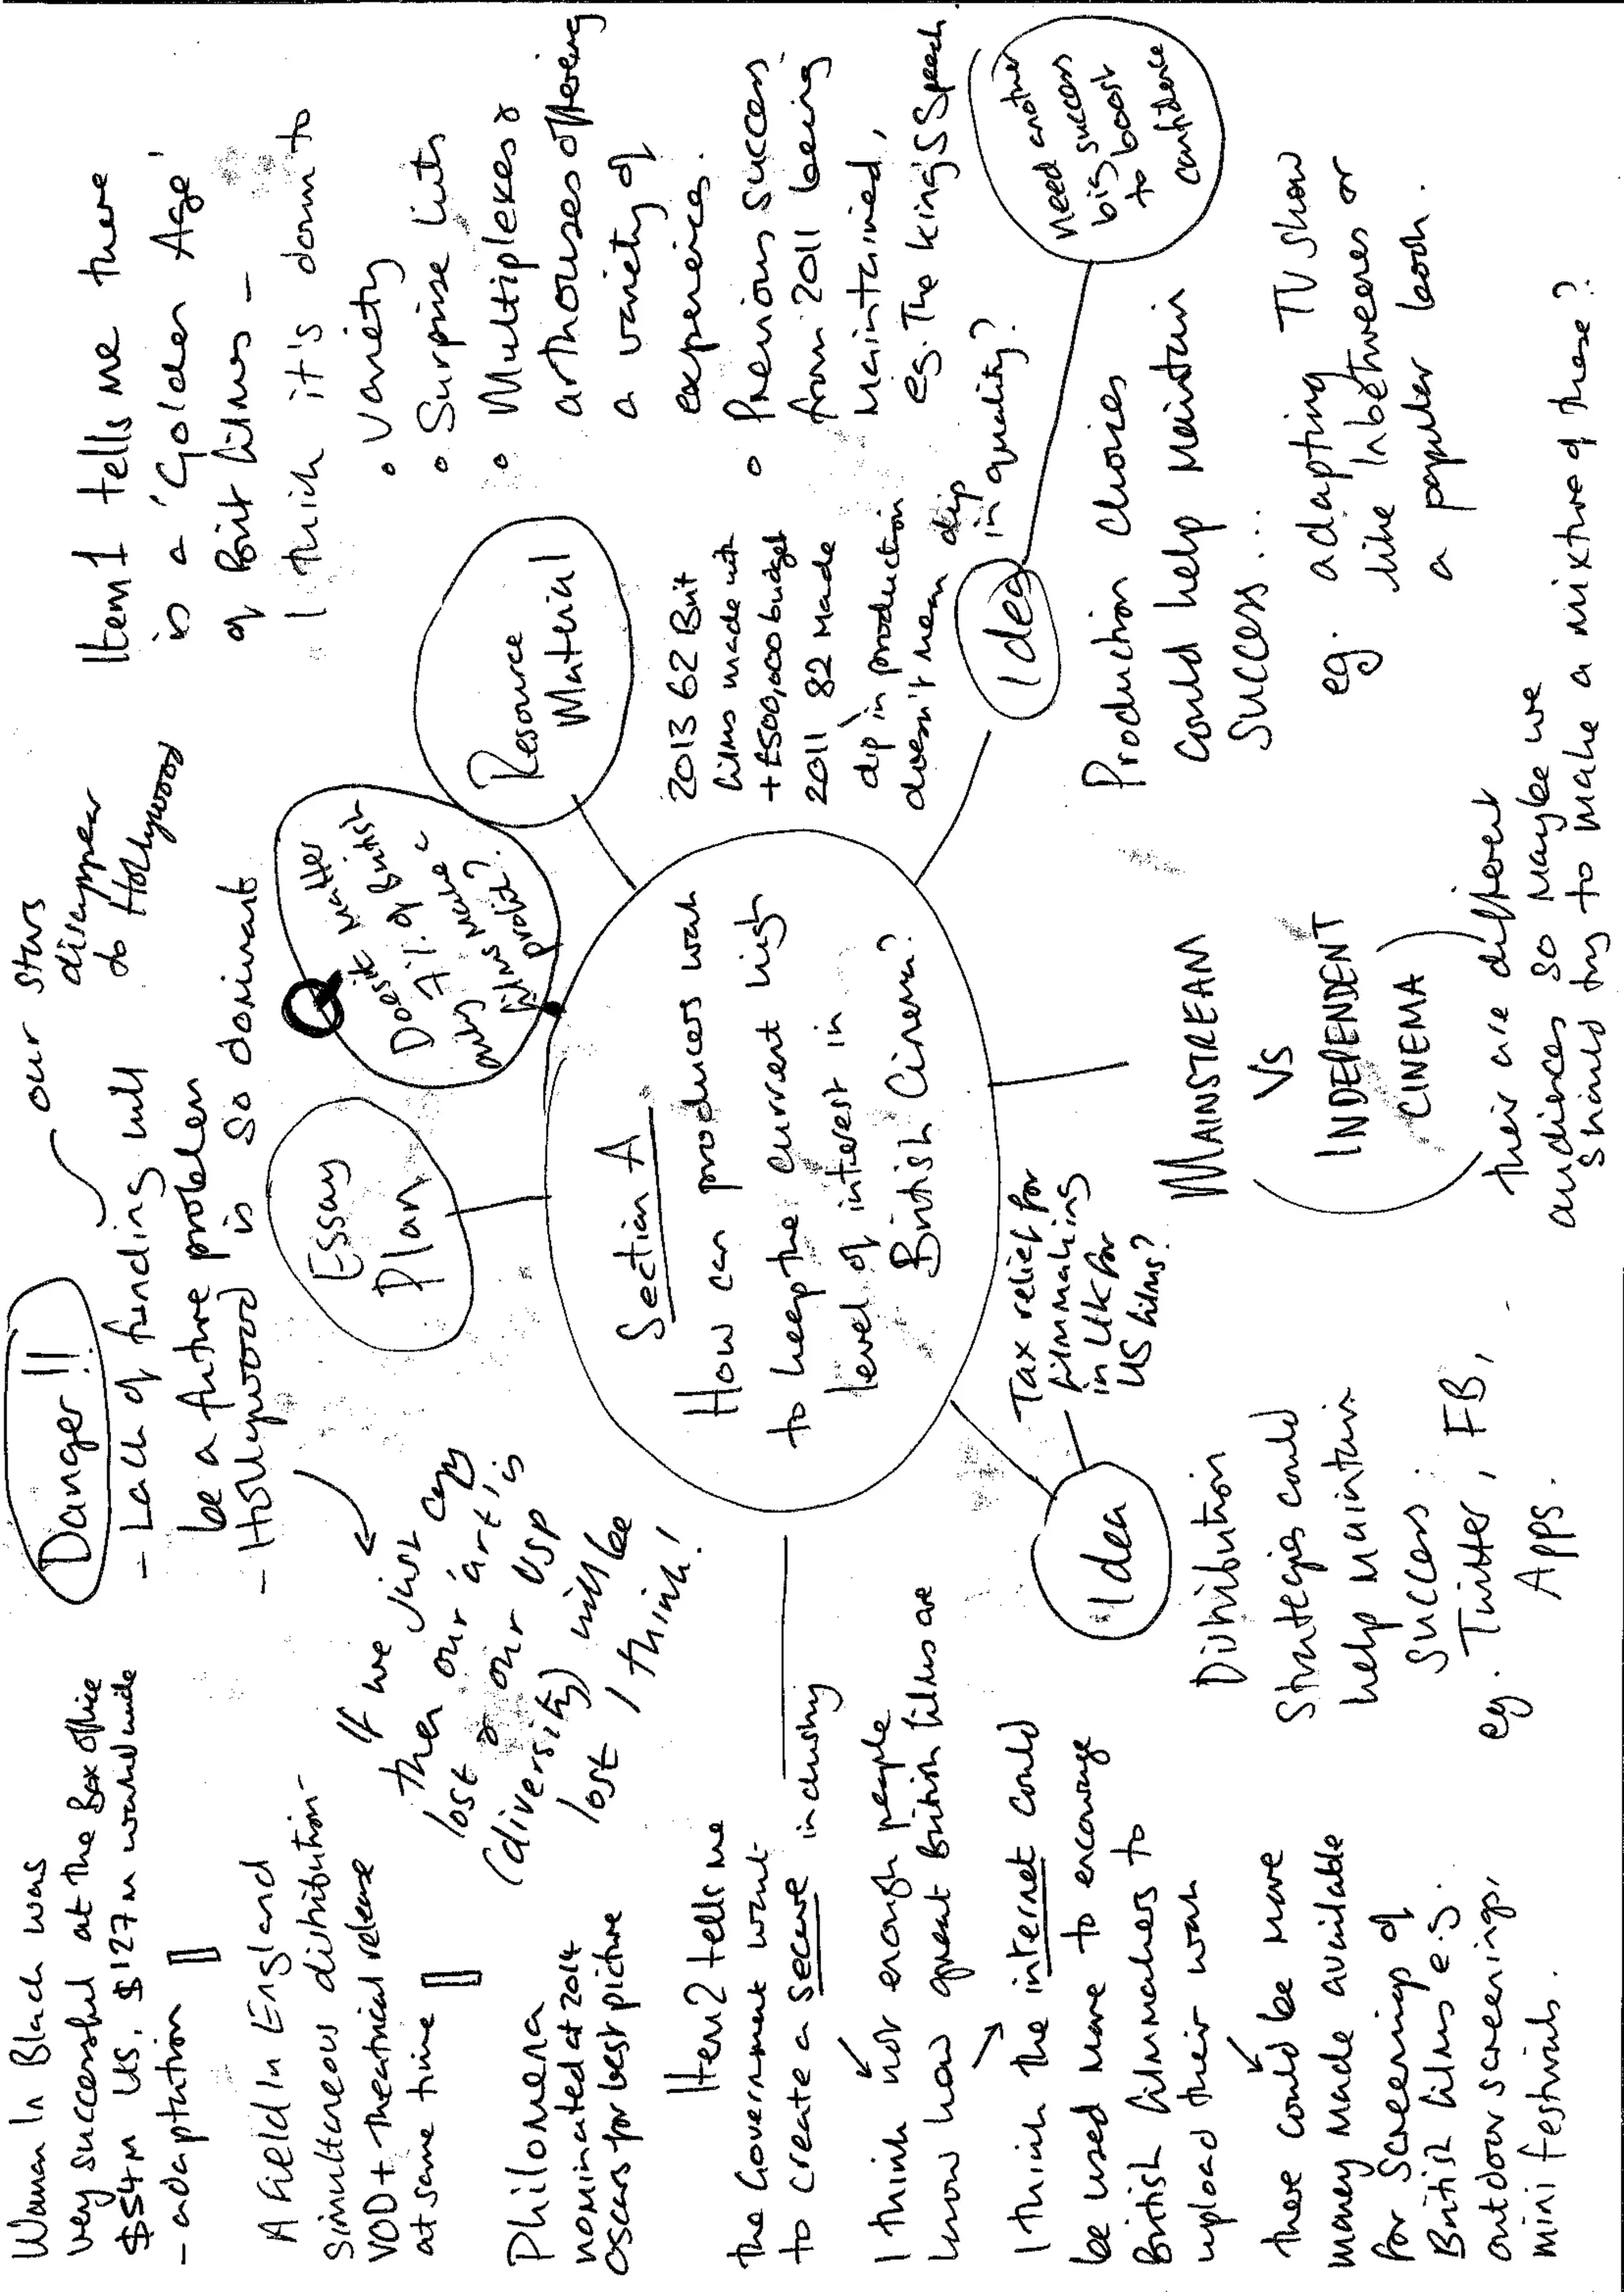 Woman In Black was
very successful at the Box office
$54m US. $127m worldwide
- adaptation
A Field In England
Simultaneous distribution -
VOD + theatrical release
at same time
Philomena
nominated at 2014
Oscars for best picture
Item 2 tells me
the Government want
to create a secure industry
I think not enough people
know how great British films are
I think the internet could
be used more to encourage
British filmmakers to
upload their work
there could be more
money made available
for screenings of
British films e.g.
outdoor screenings,
mini festivals.
Danger!!
- Lack of funding will
be a future problem
- Hollywood is so dominant
our stars
disappear
to Hollywood
If we just copy
then our 'art' is
lost & our USP
(diversity) will be
lost I think!
Essay
Plan
Q
Does it matter
7% of British
only make a
films profit?
Section A
How can producers work
to keep the current high
level of interest in
British Cinema?
Resource
Material
Item 1 tells me there
is a 'Golden Age'
of Brit films -
I think it's down to
• Variety
• Surprise hits
• Multiplexes &
arthouses offering
a variety of
experiences.
• Previous success
from 2011 being
maintained,
eg. The King's Speech
2013 62 Brit
films made with
+£500,000 budget
2011 82 made
dip in production
doesn't mean dip
in quality?
Idea
need another
big success
to boost
confidence
Production choices
could help maintain
success...
eg. adapting TV show
like Inbetweeners or
a popular book.
MAINSTREAM
Vs
INDEPENDENT
CINEMA
their are different
audiences so maybe we
should try to make a mixture of these?
Idea
Tax relief for
filmmaking
in UK for
US films?
Distribution
Strategies could
help maintain
success.
eg. Twitter, FB,
Apps.